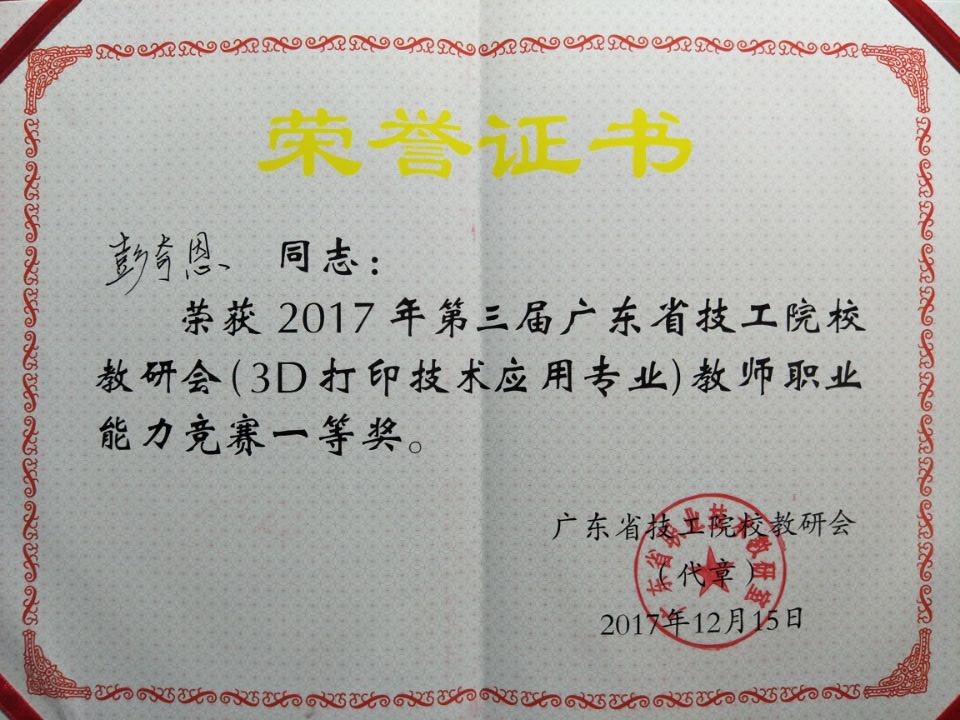 荣誉证书
彭奇恩 同志：
荣获2017年第三届广东省技工院校
教研会(3D打印技术应用专业)教师职业
能力竞赛一等奖。
广东省技工院校教研会
（代章）
2017年12月15日
广东省职业技术教研室